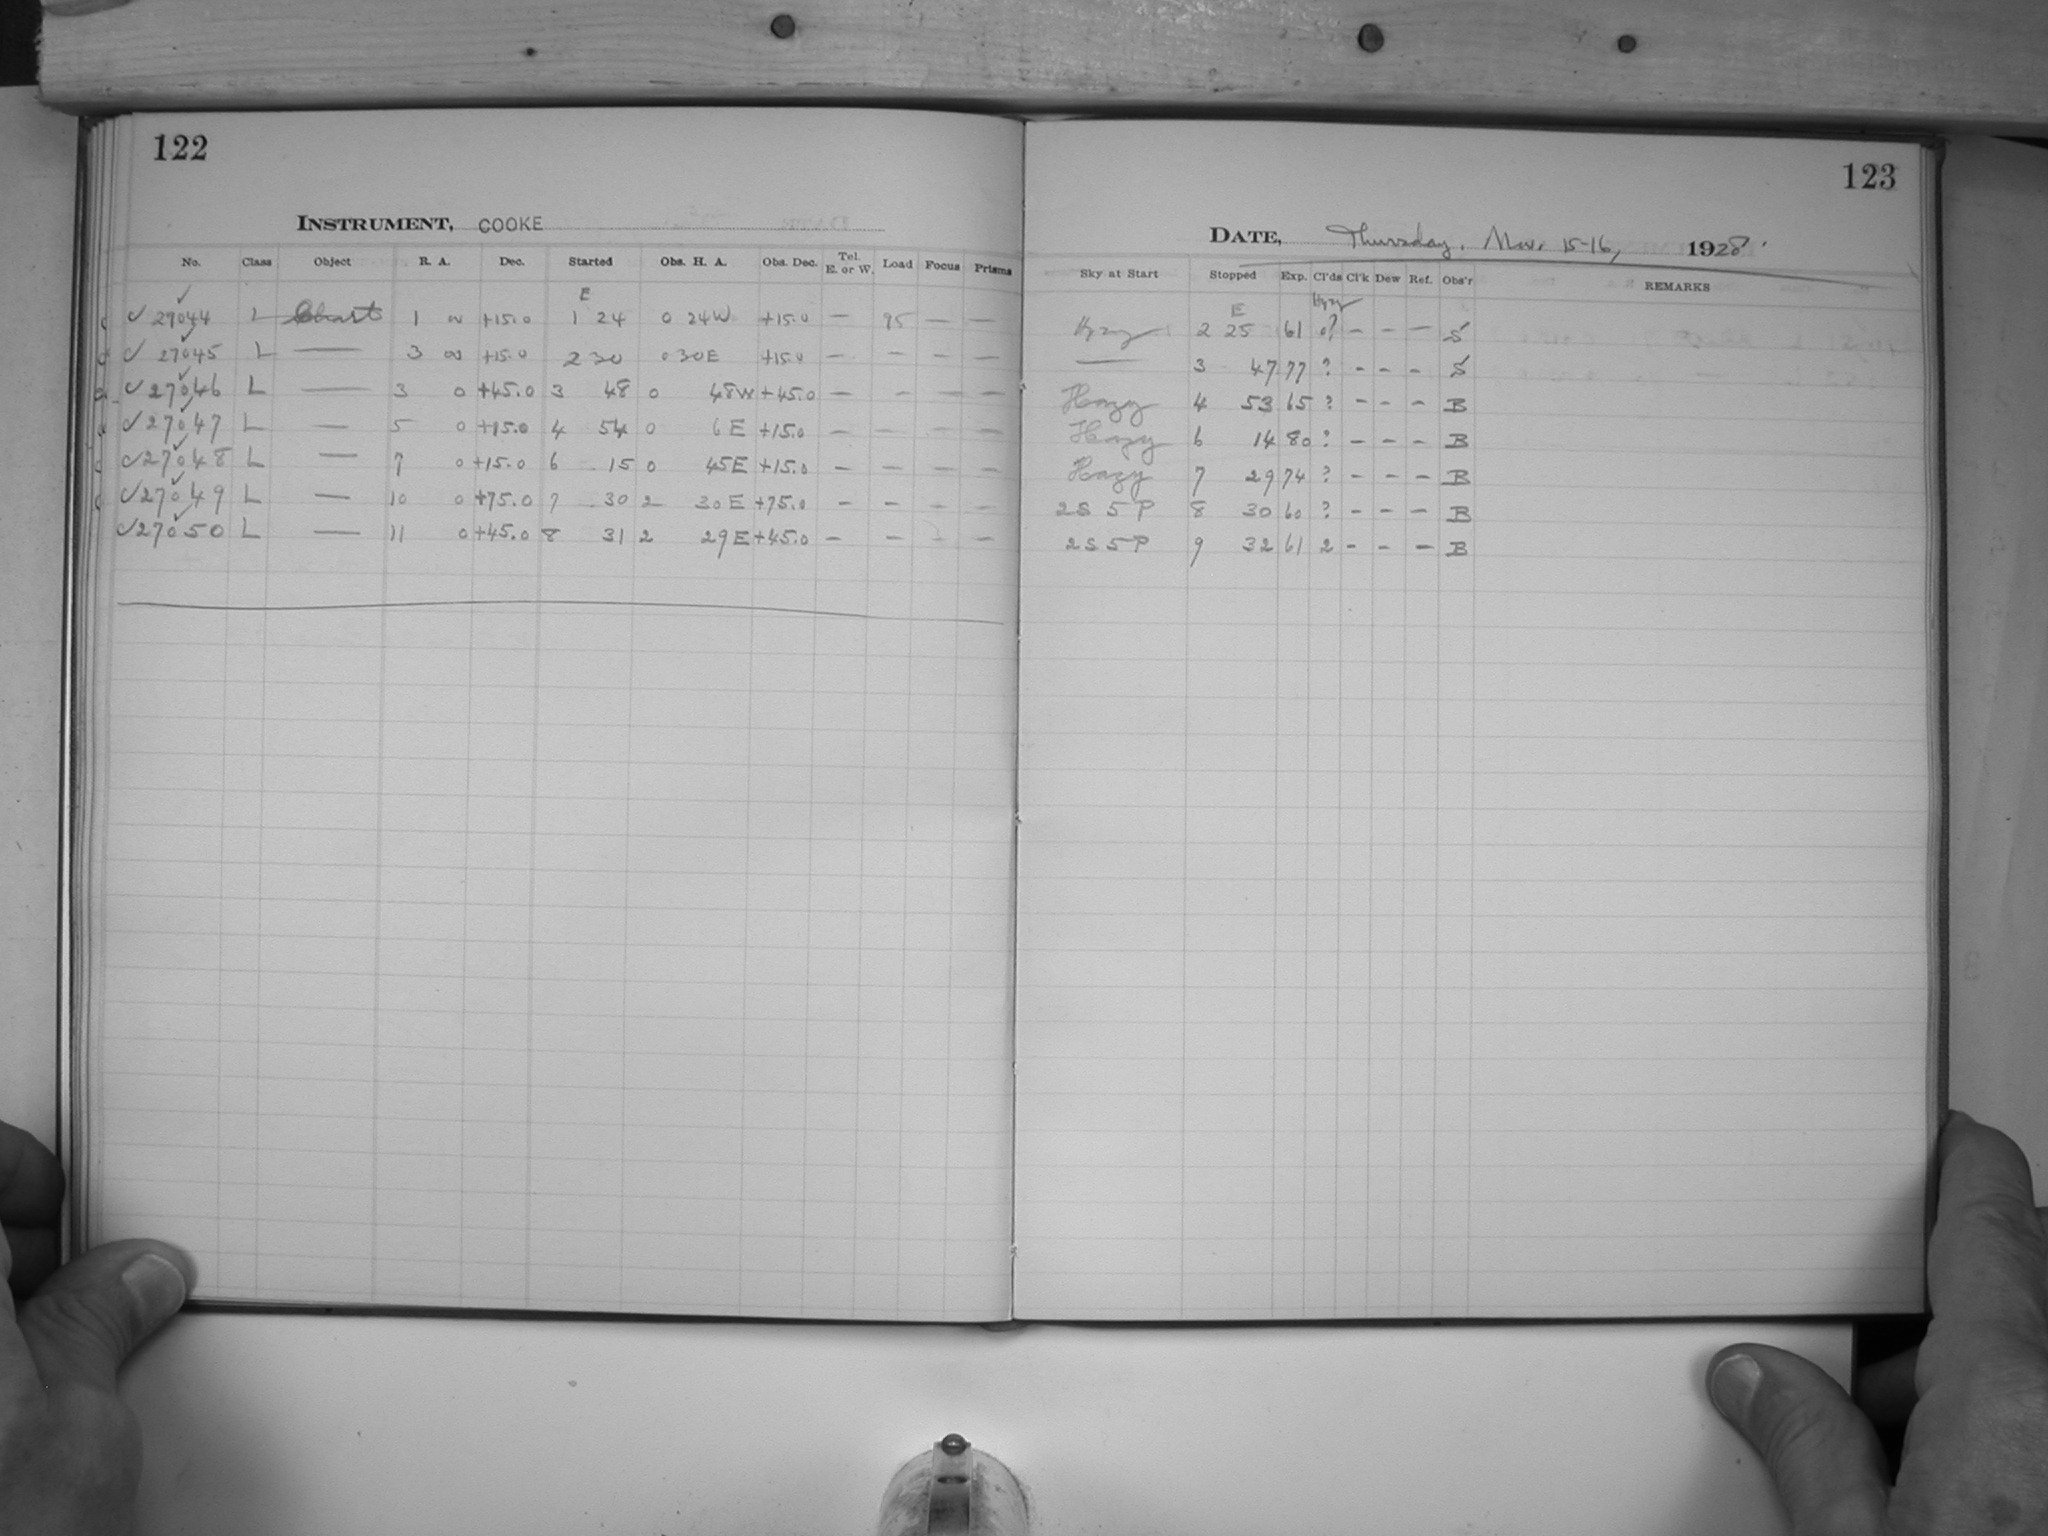 122
INSTRUMENT, COOKE
No. Class Object R. A. Dec. Started Obs. H. A. Obs. Dec. Tel. E. or W. Load Focus Prisms
E
✓ 27044 L Chart 1 00 +15.0 1 24 0 24W +15.0 — 95 — —
✓ 27045 L — 3 00 +15.0 2 30 0 30E +15.0 — — — —
✓ 27046 L — 3 0 +45.0 3 48 0 48W +45.0 — - — —
✓ 27047 L — 5 0 +15.0 4 54 0 6E +15.0 — — — —
✓ 27048 L — 7 0 +15.0 6 15 0 45E +15.0 — — — —
✓ 27049 L — 10 0 +75.0 7 30 2 30E +75.0 — — - —
✓ 27050 L — 11 0 +45.0 8 31 2 29E +45.0 — — - —
123
DATE, Thursday, Nov. 15-16, 1928
Sky at Start Stopped Exp. Cl'ds Cl'k Dew Ref. Obs'r REMARKS
E Hazy
Hazy 2 25 61 ? — — — S
— 3 47 77 ? - - - S
Hazy 4 53 65 ? - - - B
Hazy 6 14 80 ? - - - B
Hazy 7 29 74 ? - - - B
2S 5P 8 30 60 ? - - - B
2S 5P 9 32 61 2 - - - B